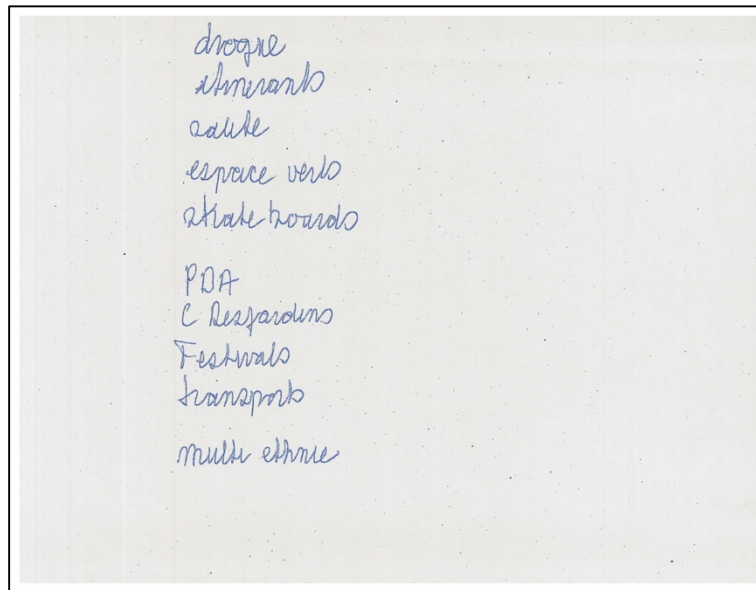 drogue
itinerants
saleté
espace verts
skate boards
PDA
C Desjardins
Festivals
transports
multi ethnie